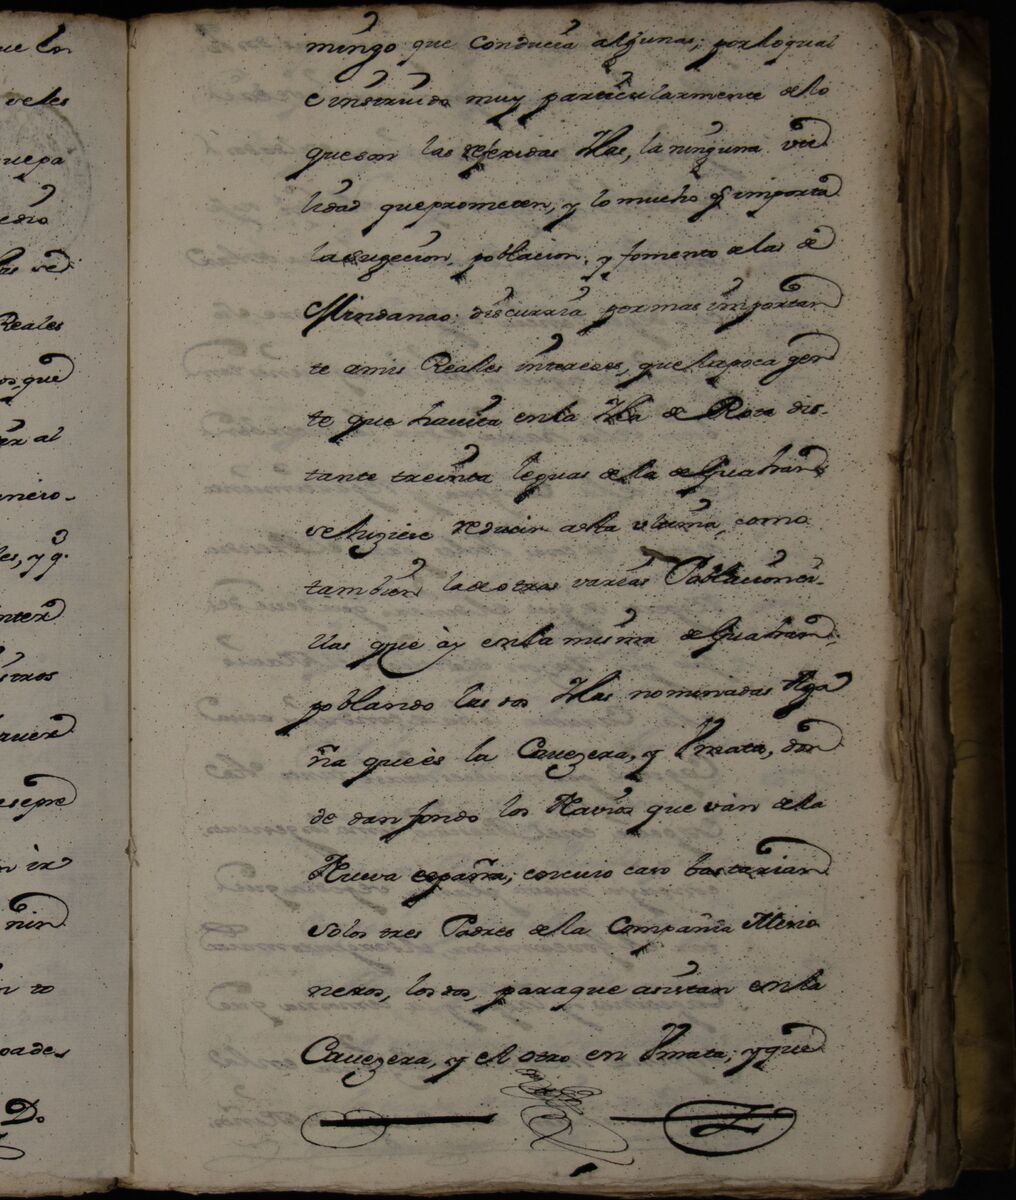 ue los
veles
uepa
edio
las ve
Reales
os, que
er al
nero-
les, y q.
nter
stros
aver
esepre
n ir
nin
n to
dades
D.
mingo que conducia algunas; porloqual
e instruido muy particularmente dello
queson las referidas Yslas, la ninguna vti
lidad queprometen, y lo mucho q importa
la sugecion, poblacion, y fomento alas de
Mindanao; discurria por mas importan
te amis Reales intereses, que la poca gen
te que havia enla Ysla de Rota dis-
tante treinta leguas dela de Guahan
se hiziese reducir aesta vltima, como
tambien lade otras varias Poblacionci-
llas que ày enla misma de Guahan,
poblando las dos Yslas nominadas Aga
ña que ès la Cavezera, y Vmata, don
de dan fondo los Navios que vàn dela
Nueva españa; encuio caso bastarian
solos tres Padres dela Compañia Misio
neros, los dos, paraque asistan enla
Cavezera, y el otro en Vmata; yque